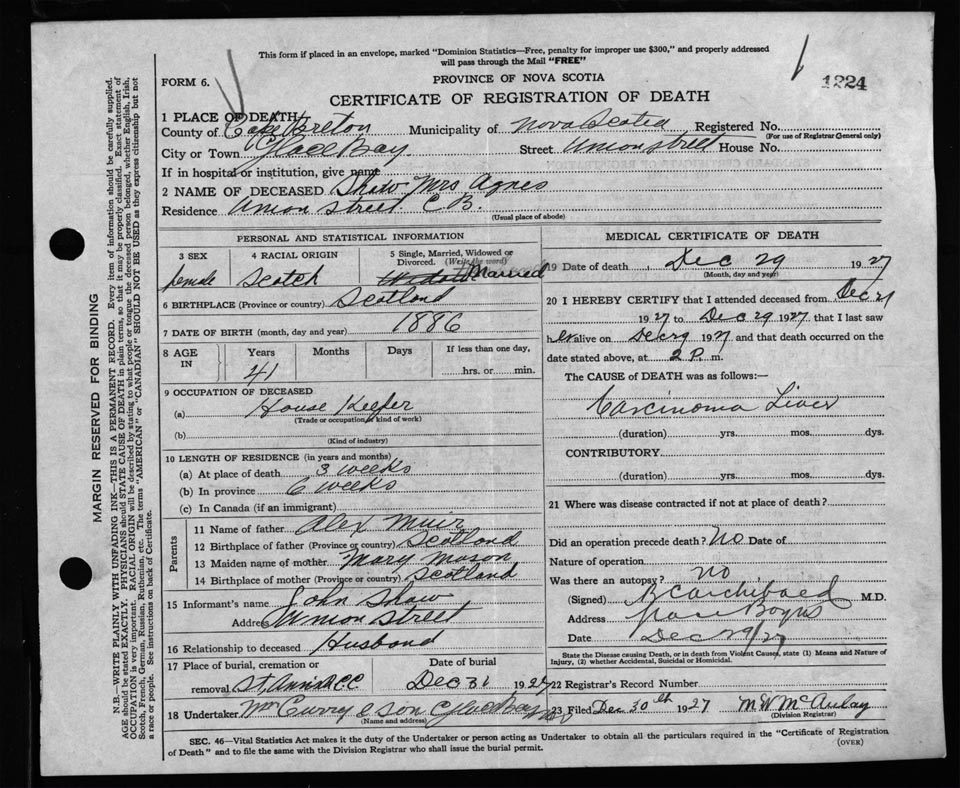 This form if placed in an envelope, marked "Dominion Statistics—Free, penalty for improper use $300," and properly addressed
will pass through the Mail "FREE"
FORM 6.
PROVINCE OF NOVA SCOTIA
1224
CERTIFICATE OF REGISTRATION OF DEATH
1 PLACE OF DEATH
County of Cape Breton Municipality of Nova Scotia Registered No.
(For use of Registrar General only)
City or Town Glace Bay Street Union Street House No.
If in hospital or institution, give name
2 NAME OF DECEASED Shaw Mrs Agnes
Residence Union Street C B.
(Usual place of abode)
PERSONAL AND STATISTICAL INFORMATION
3 SEX 4 RACIAL ORIGIN 5 Single, Married, Widowed or
Divorced. (Write the word)
female Scotch Married
6 BIRTHPLACE (Province or country) Scotland
7 DATE OF BIRTH (month, day and year) 1886
8 AGE IN Years Months Days If less than one day,
41 hrs. or min.
9 OCCUPATION OF DECEASED
(a) House Keeper
(Trade or occupation or kind of work)
(b)
(Kind of industry)
10 LENGTH OF RESIDENCE (in years and months)
(a) At place of death 3 weeks
(b) In province 6 weeks
(c) In Canada (if an immigrant)
Parents
11 Name of father Alex Muir
12 Birthplace of father (Province or country) Scotland
13 Maiden name of mother Mary Mason
14 Birthplace of mother (Province or country) Scotland
15 Informant's name John Shaw
Address Union Street
16 Relationship to deceased Husband
17 Place of burial, cremation or Date of burial
removal Dec 31 1927
18 Undertaker Curry & Son Glace Bay
(Name and address)
MEDICAL CERTIFICATE OF DEATH
19 Date of death Dec 29 1927
(Month, day and year)
20 I HEREBY CERTIFY that I attended deceased from Dec 21
1927 to Dec 29 1927 that I last saw
her alive on Dec 29 1927 and that death occurred on the
date stated above, at 2 P. m.
The CAUSE of DEATH was as follows:—
Carcinoma Liver
(duration) yrs. mos. dys.
CONTRIBUTORY
(duration) yrs. mos. dys.
21 Where was disease contracted if not at place of death?
Did an operation precede death? No Date of
Nature of operation
Was there an autopsy? no
(Signed) Archibald M.D.
Address
Date Dec 29/27
State the Disease causing Death, or in death from Violent Causes, state (1) Means and Nature of
Injury, (2) whether Accidental, Suicidal or Homicidal.
22 Registrar's Record Number
23 Filed Dec 30th 1927 M W McAulay
(Division Registrar)
SEC. 46—Vital Statistics Act makes it the duty of the Undertaker or person acting as Undertaker to obtain all the particulars required in the "Certificate of Registration
of Death" and to file the same with the Division Registrar who shall issue the burial permit.
(OVER)
MARGIN RESERVED FOR BINDING
N.B.—WRITE PLAINLY WITH UNFADING INK—THIS IS A PERMANENT RECORD. Every item of information should be carefully supplied.
AGE should be stated EXACTLY. PHYSICIANS should STATE CAUSE OF DEATH in plain terms, so that it may be properly classified. Exact statement of
OCCUPATION is very important. RACIAL ORIGIN will be described by stating to what people or tongue the deceased person belonged, whether English, Irish,
Scotch, French, German, Russian, Ruthenian, etc. The terms "AMERICAN" or "CANADIAN" SHOULD NOT BE USED as they express citizenship but not
a race or people. See instructions on back of Certificate.